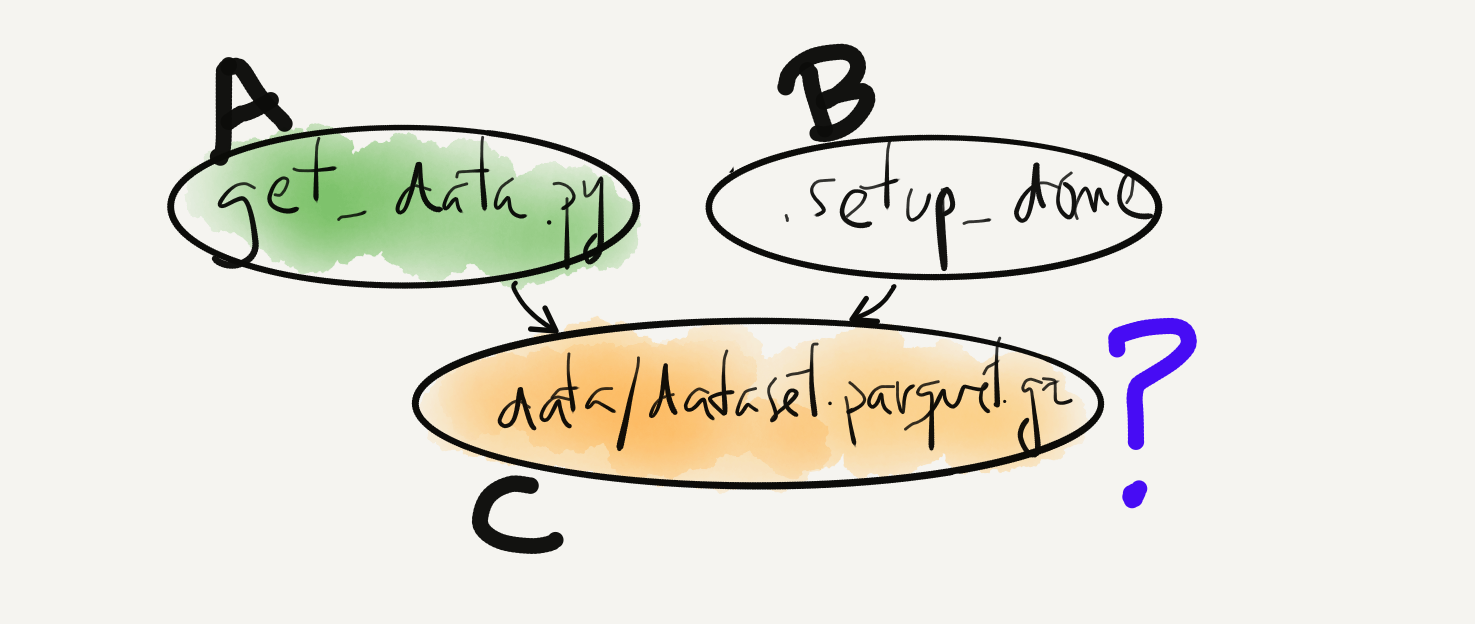 A
B
get_data.py
.setup_done
data/dataset.parquet.gz
?
C